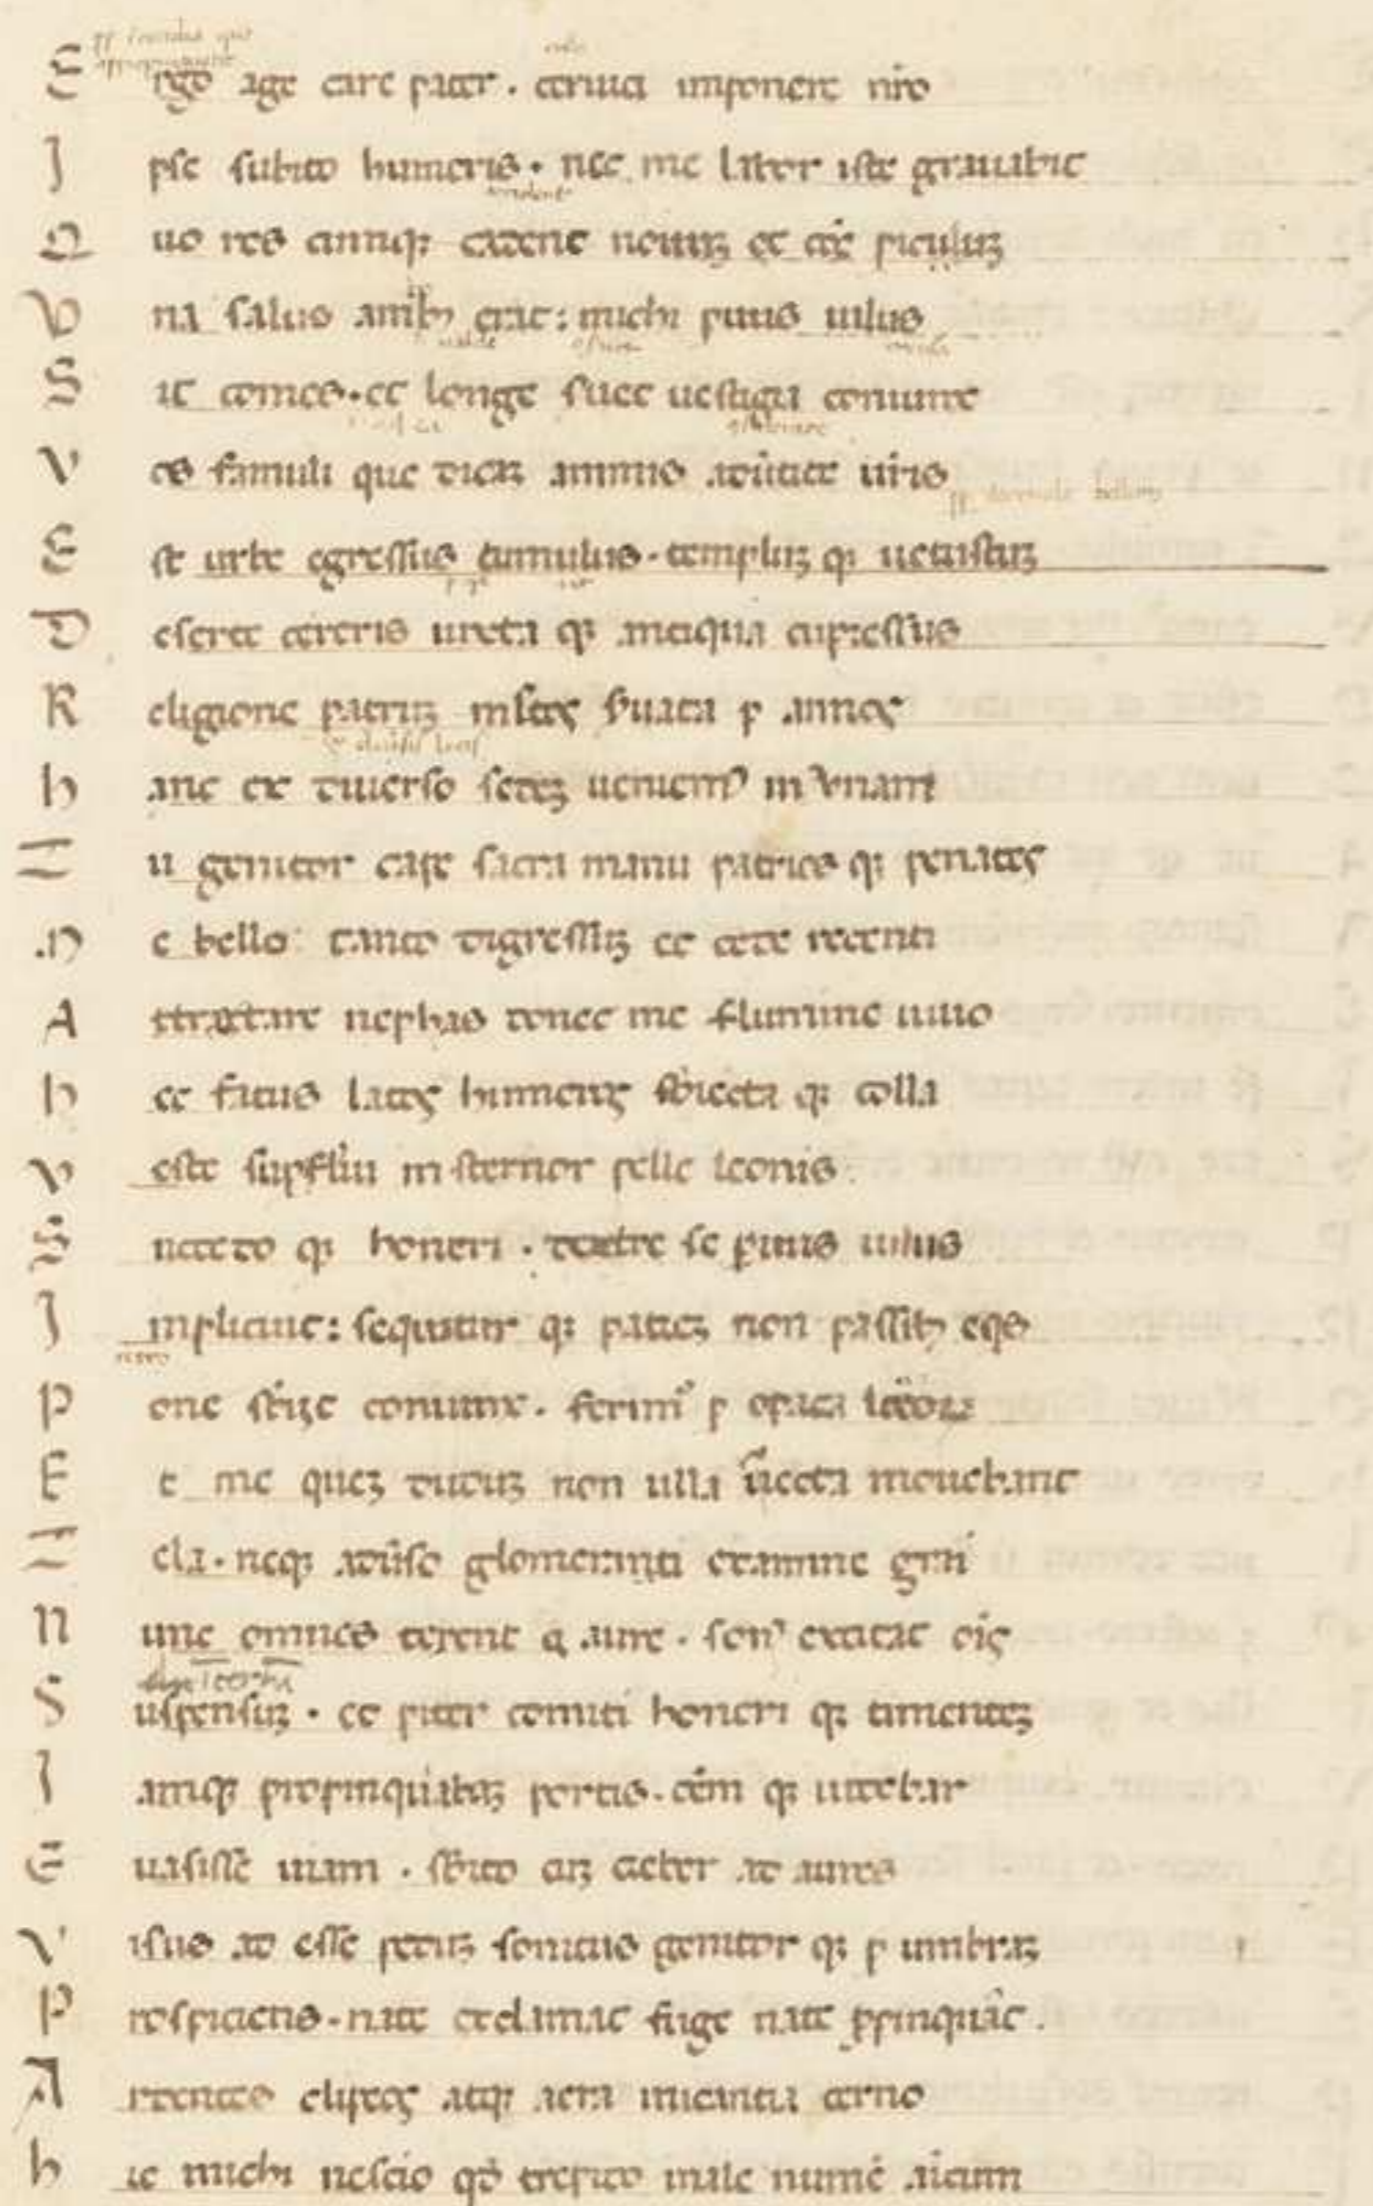 Ergo age care pater. ceruici imponere nr̄o
Ipse subibo humeris. nec me labor iste grauabit
Quo res cunnqꝫ cadent nouuꝫ et cōe piculuꝫ
Vna salus ambobꝫ erat: michi puus iulus
Sit comes. et longe seruet uestigia coniunx
Vos famuli que dicaꝫ animis aduertite uris
Est urbe egressus tumulus. templuꝫ qꝫ uetustuꝫ
Deserte cereris iuxta qꝫ antiqua cupressus
Religione patruꝫ multos seruata p annos
hanc ex diuerso sedeꝫ ueniemꝰ in vnam
Tu genitor cape sacra manu patrios qꝫ penates
Me bello tanto digressuꝫ et cede recenti
Attrectare nephas donec me flumine uiuo
hec fatus latos humeros sbiecta qꝫ colla
Veste supfusa insternor pelle leonis
Succedo qꝫ honeri. dextre se puus iulus
Implicuit: sequitur qꝫ patreꝫ non passibꝫ eqs
Pone subit coniunx. ferimꝰ p opaca locoꝝ
Et me queꝫ duduꝫ non ulla iniecta mouebant
Tela. neqꝫ aduerso glomerati examine grai
Nunc omnes terrent aure. sonꝰ excitat ois
Suspensuꝫ. et piter comiti honeri qꝫ timenteꝫ
Iamqꝫ propinquabaꝫ portis. oem qꝫ uidebar
Euasisse uiam. sbito cuꝫ creber ad aures
Visus ad esse peduꝫ sonitus genitor qꝫ p umbraꝫ
Prospiciens. nate exclamat fuge nate ppinquāt.
Ardentes clipeos atqꝫ aera micantia cerno
hic michi nescio qd̄ trepido male numē aicum